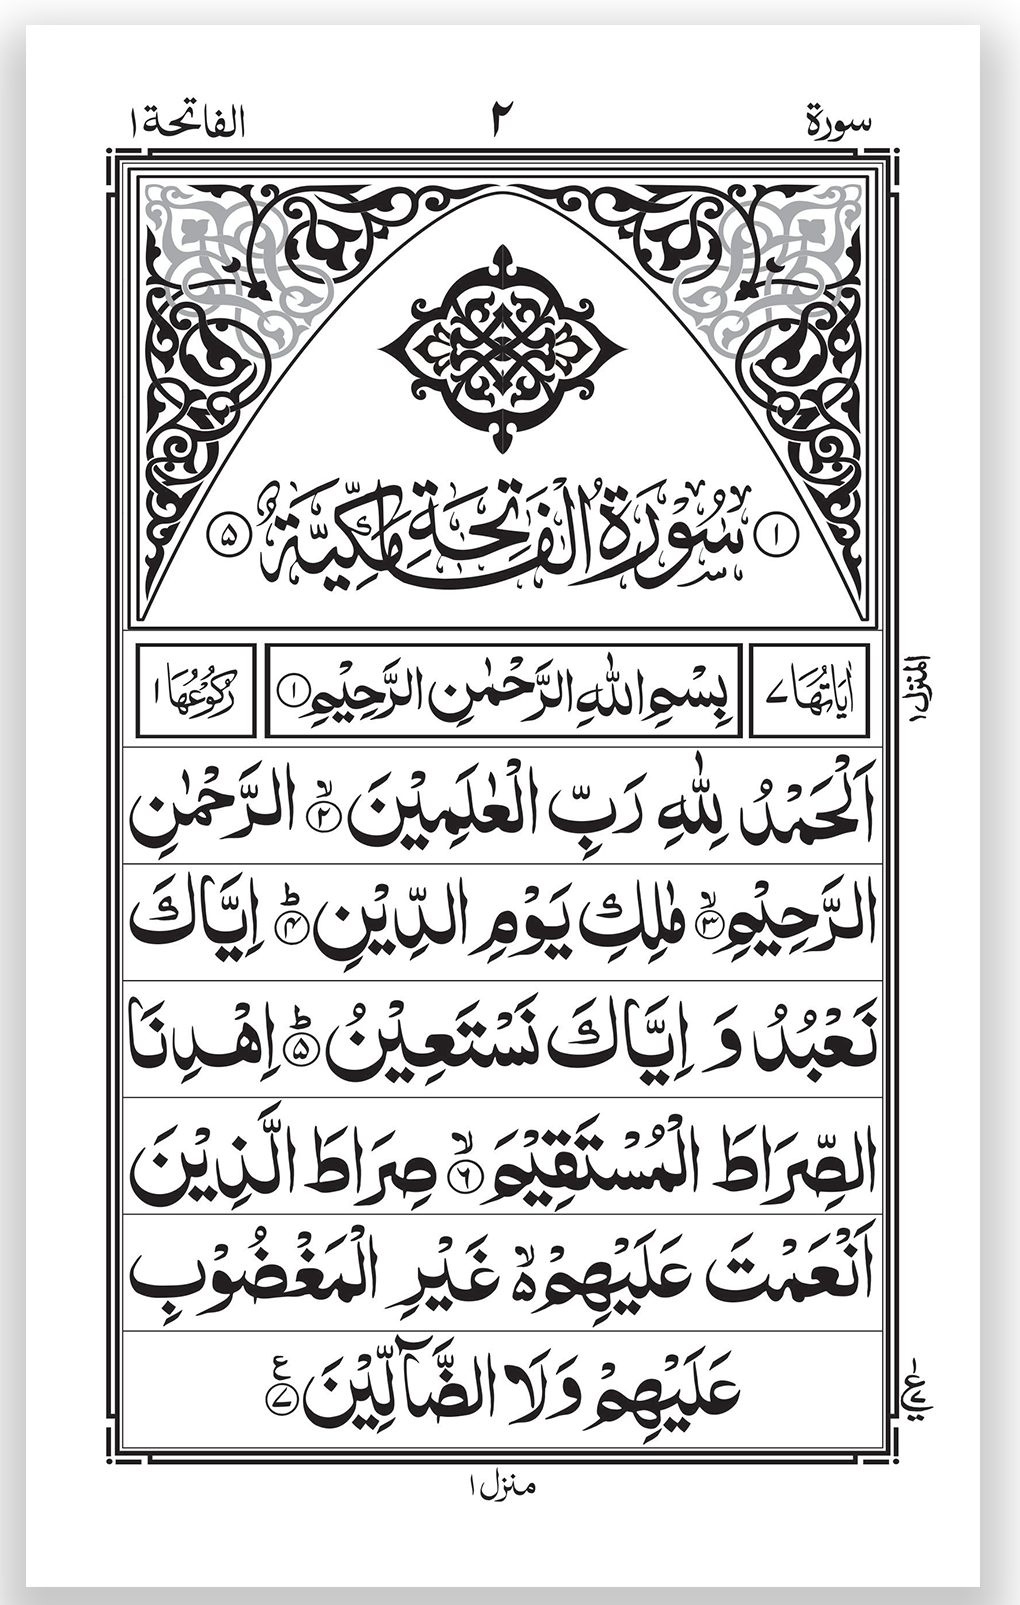 سورة ٢ الفاتحة ١
١ سُوْرَةُ الْفَاتِحَةِ مَكِّيَّةٌ ٥
اٰيَاتُهَا ٧ بِسْمِ اللّٰهِ الرَّحْمٰنِ الرَّحِيْمِ ١ رُكُوْعُهَا ١
المنزل ١
اَلْحَمْدُ لِلّٰهِ رَبِّ الْعٰلَمِيْنَ ۙ٢ الرَّحْمٰنِ
الرَّحِيْمِ ۙ٣ مٰلِكِ يَوْمِ الدِّيْنِ ؕ٤ اِيَّاكَ
نَعْبُدُ وَ اِيَّاكَ نَسْتَعِيْنُ ؕ٥ اِهْدِنَا
الصِّرَاطَ الْمُسْتَقِيْمَ ۙ٦ صِرَاطَ الَّذِيْنَ
اَنْعَمْتَ عَلَيْهِمْ ۙ۬ۥ غَيْرِ الْمَغْضُوْبِ
عَلَيْهِمْ وَلَا الضَّآلِّيْنَ ٧ ع
منزل ١